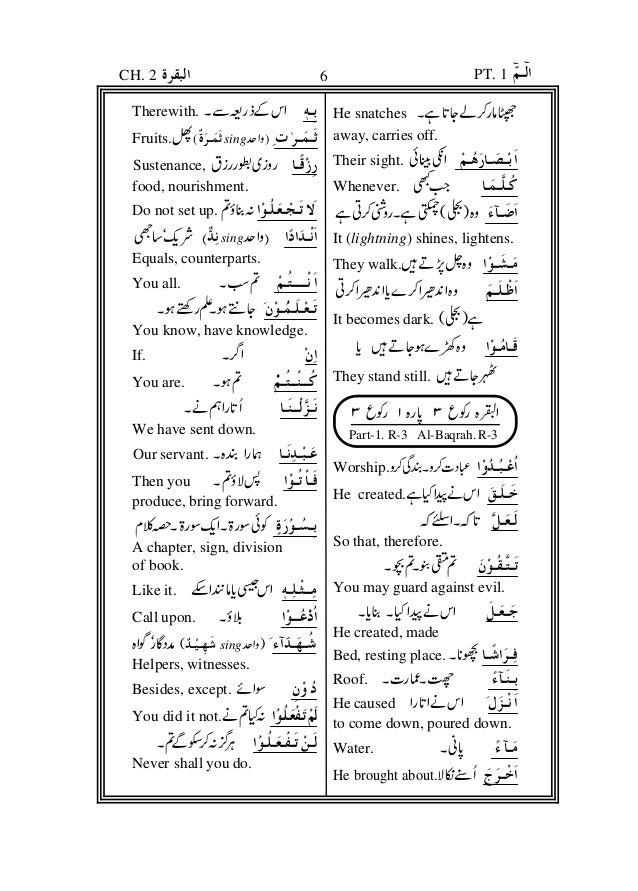 PT. 1 الٓـمّٓ 6 CH. 2 البقرة
جھپٹا مار کر لے جاتا ہے۔ He snatches
away, carries off.
اَبْصَارَهُمْ انکی بینائی Their sight.
كُلَّمَا جب کبھی Whenever.
اَضَآءَ وہ (بجلی) چمکتی ہے۔ روشنی کرتی ہے
It (lightning) shines, lightens.
مَشَوْا وہ چل پڑتے ہیں۔ They walk.
اَظْلَمَ وہ اندھیرا کرے یا اندھیرا کرتی
ہے (بجلی) It becomes dark.
قَامُوْا وہ کھڑے ہو جاتے ہیں یا
ٹھہر جاتے ہیں They stand still.
البقرہ رکوع ۳ پارہ ۱ رکوع ۳
Part-1. R-3 Al-Baqrah. R-3
اُعْبُدُوْا عبادت کرو۔ بندگی کرو Worship.
خَلَقَ اس نے پیدا کیا ہے He created.
لَعَلَّ تاکہ۔ اسلئے کہ
So that, therefore.
تَتَّقُوْنَ تم متقی بنو۔ تم بچو۔
You may guard against evil.
جَعَلَ اس نے پیدا کیا۔ بنایا۔
He created, made
فِرَاشًا بچھونا۔ Bed, resting place.
بِنَآءً چھت۔ عمارت۔ Roof.
اَنْزَلَ اس نے اتارا He caused
to come down, poured down.
مَآءً پانی۔ Water.
اَخْرَجَ اُسنے نکالا He brought about.
بِهٖ اس کے ذریعہ سے۔ Therewith.
ثَمَرٰتِ (واحد sing ثَمَرَةٌ) پھل Fruits.
رِزْقًا روزی بطور رزق Sustenance,
food, nourishment.
لَا تَجْعَلُوْا نہ بناؤ تم Do not set up.
اَنْدَادًا (واحد sing نِدٌّ) شریک، ساجھی
Equals, counterparts.
اَنْتُمْ تم سب۔ You all.
تَعْلَمُوْنَ جانتے ہو۔ علم رکھتے ہو۔
You know, have knowledge.
اِنْ اگر۔ If.
كُنْتُمْ تم ہو۔ You are.
نَزَّلْنَا اُتارا ہم نے۔
We have sent down.
عَبْدِنَا ہمارا بندہ۔ Our servant.
فَاْتُوْا پس لاؤ تم۔ Then you
produce, bring forward.
بِسُوْرَةٍ کوئی سورۃ۔ ایک سورۃ۔ حصہ کلام
A chapter, sign, division
of book.
مِثْلِهٖ اس جیسی یا مانند اسکے Like it.
اُدْعُوْا بلاؤ۔ Call upon.
شُهَدَآءَ (واحد sing شَهِيْدٌ) مددگار، گواہ
Helpers, witnesses.
دُوْنِ سوائے۔ Besides, except.
لَمْ تَفْعَلُوْا نہ کیا تم نے You did it not.
لَنْ تَفْعَلُوْا ہرگز نہ کر سکو گے تم۔
Never shall you do.